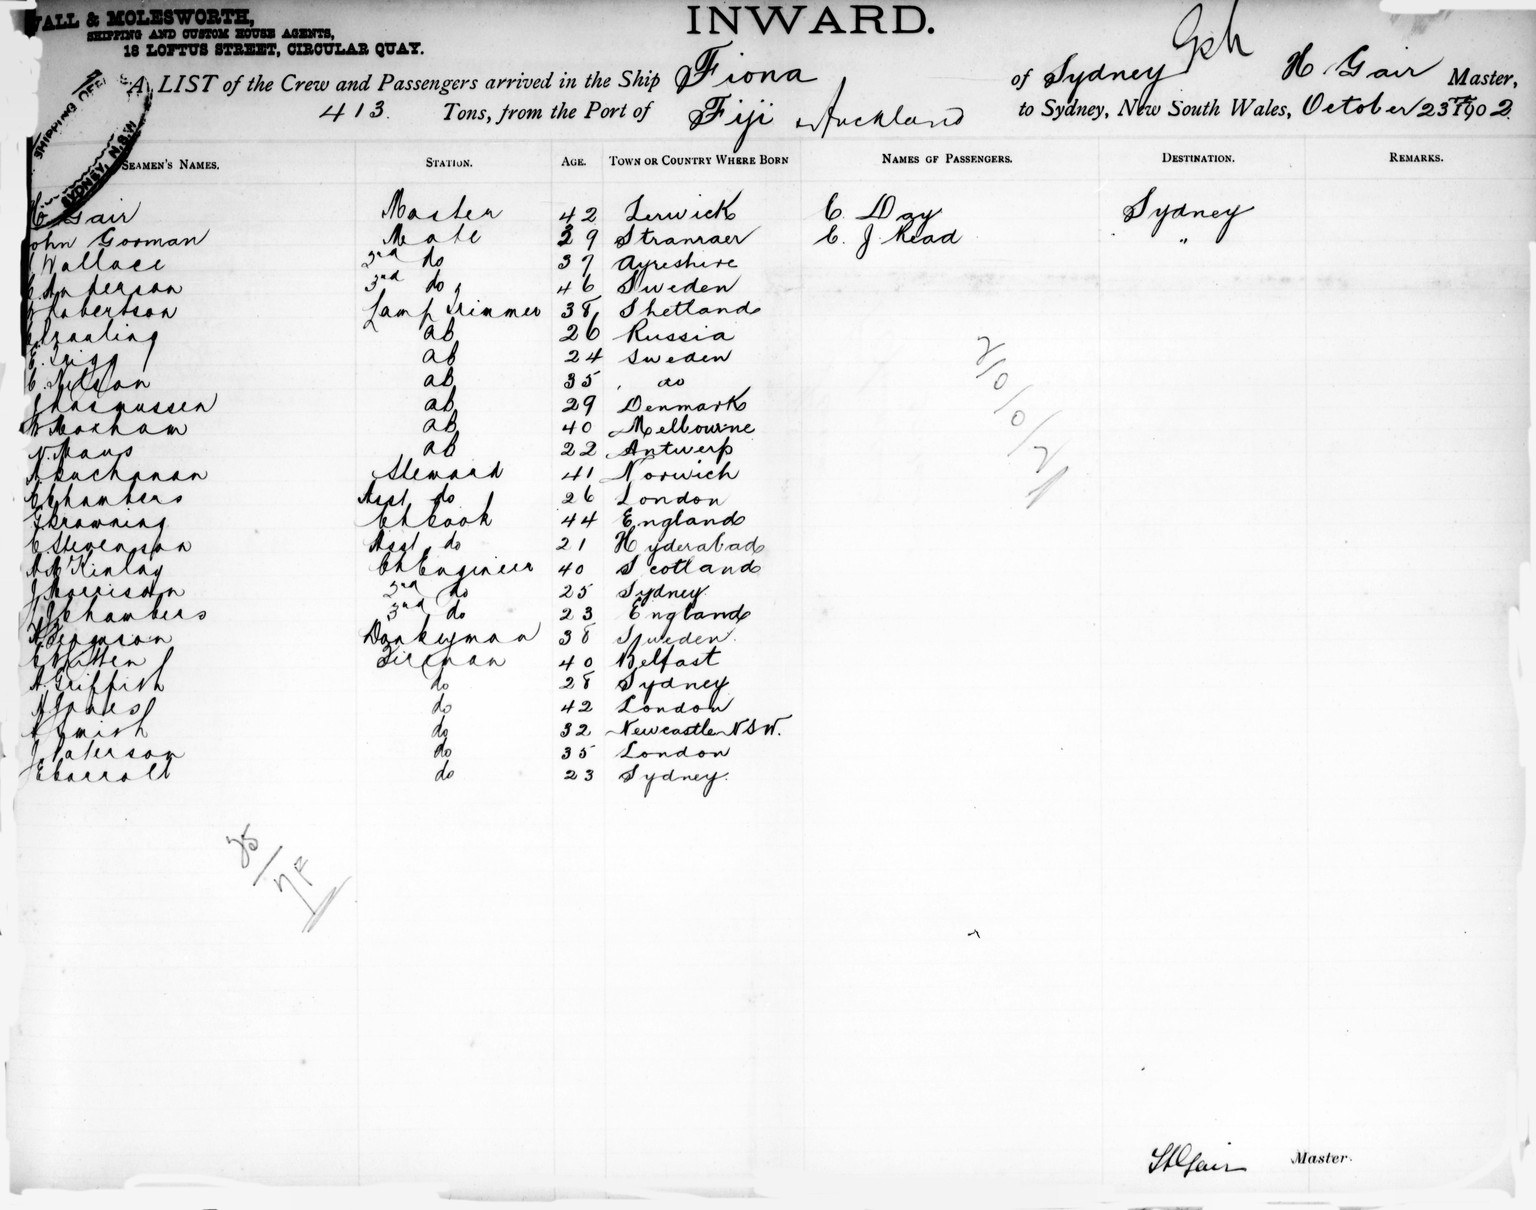 WALL & MOLESWORTH,
SHIPPING AND CUSTOM HOUSE AGENTS,
18 LOFTUS STREET, CIRCULAR QUAY.
INWARD.
SHIPPING OFFICE SYDNEY, N.S.W
A LIST of the Crew and Passengers arrived in the Ship Fiona of Sydney H Gair Master,
413 Tons, from the Port of Fiji & Auckland to Sydney, New South Wales, October 23rd 1902
SEAMEN'S NAMES. STATION. AGE. TOWN OR COUNTRY WHERE BORN NAMES OF PASSENGERS. DESTINATION. REMARKS.
H Gair Master 42 Lerwick C. Day Sydney
John Gorman Mate 39 Stranraer C. J Read "
Wallace 2nd do 37 Ayreshire
Anderson 3rd do 46 Sweden
Robertson Lamp Trimmer 38 Shetland
ab 26 Russia
ab 24 Sweden
C. Nelson ab 35 do
Rasmussen ab 29 Denmark
Moxham ab 40 Melbourne
N. Maus ab 22 Antwerp
Buchanan Steward 41 Norwich
C Chambers Asst do 26 London
Browning Ch Cook 44 England
C Stevenson Asst do 21 Hyderabad
A McKinlay Ch Engineer 40 Scotland
J Morrison 2nd do 25 Sydney
J Chambers 3rd do 23 England
Donkeyman 38 Sweden
Fireman 40 Belfast
A. Griffith do 28 Sydney
Jones do 42 London
A Smith do 32 Newcastle NSW.
J. Paterson do 35 London
E Carroll do 23 Sydney.
2/0/0/2
25
H Gair Master.